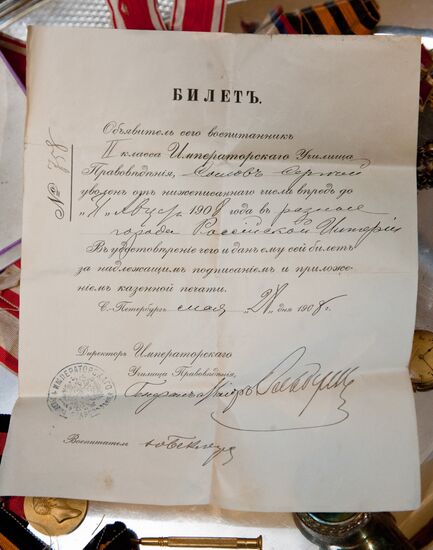 БИЛЕТЪ.
№ 758
Объявитель сего воспитанникъ
II класса Императорскаго Училища
Правовѣдѣнія, Сергѣй
уволенъ отъ нижеписаннаго числа впредь до
"11" Августа 1908 года въ разные
города Россійской Имперіи
Въ удостовѣреніе чего и данъ ему сей билетъ
за надлежащимъ подписаніемъ и приложе-
ніемъ казенной печати.
С.-Петербургъ мая "28" дня 1908 г.
Директоръ Императорскаго
Училища Правовѣдѣнія,
ИМПЕРАТОРСКАГО
Воспитатель